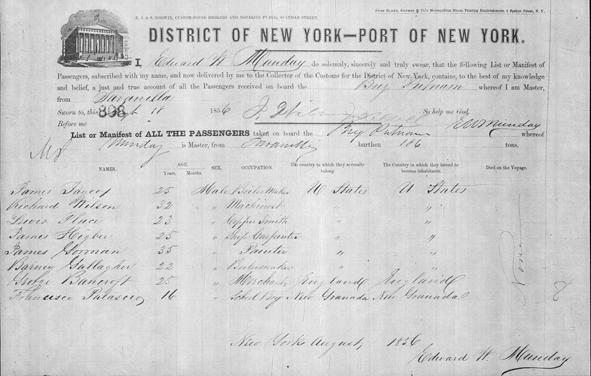 DISTRICT OF NEW YORK—PORT OF NEW YORK.
I, Edward W. Munday do solemnly, sincerely and truly swear, that the following List or Manifest of
Passengers, subscribed with my name, and now delivered by me to the Collector of the Customs for the District of New York, contains, to the best of my knowledge
and belief, a just and true account of all the Passengers received on board the Brig Putnam whereof I am Master,
from Savanilla
Sworn to, this 18 1856 So help me God,
Before me E W Munday
808
List or Manifest of ALL THE PASSENGERS taken on board the Brig Putnam whereof
Munday is Master, from Savanilla burthen 186 tons.
NAMES. AGE. Years Months SEX. OCCUPATION. The country to which they severally belong. The country in which they intend to become inhabitants. Died on the Voyage.
James 25 Male Boiler Maker U States U States
Richard Wilson 32 " Machinist " "
Lewis Place 23 " Copper Smith " "
James Higbee 25 " Ship Carpenter " "
James Gorman 35 " Painter " "
Barney Gallagher 22 " Boilermaker " "
George Bancroft 25 " Merchant England England
Francisco 16 " School Boy New Granada New Granada
None
New York August, 1856
Edward W. Munday